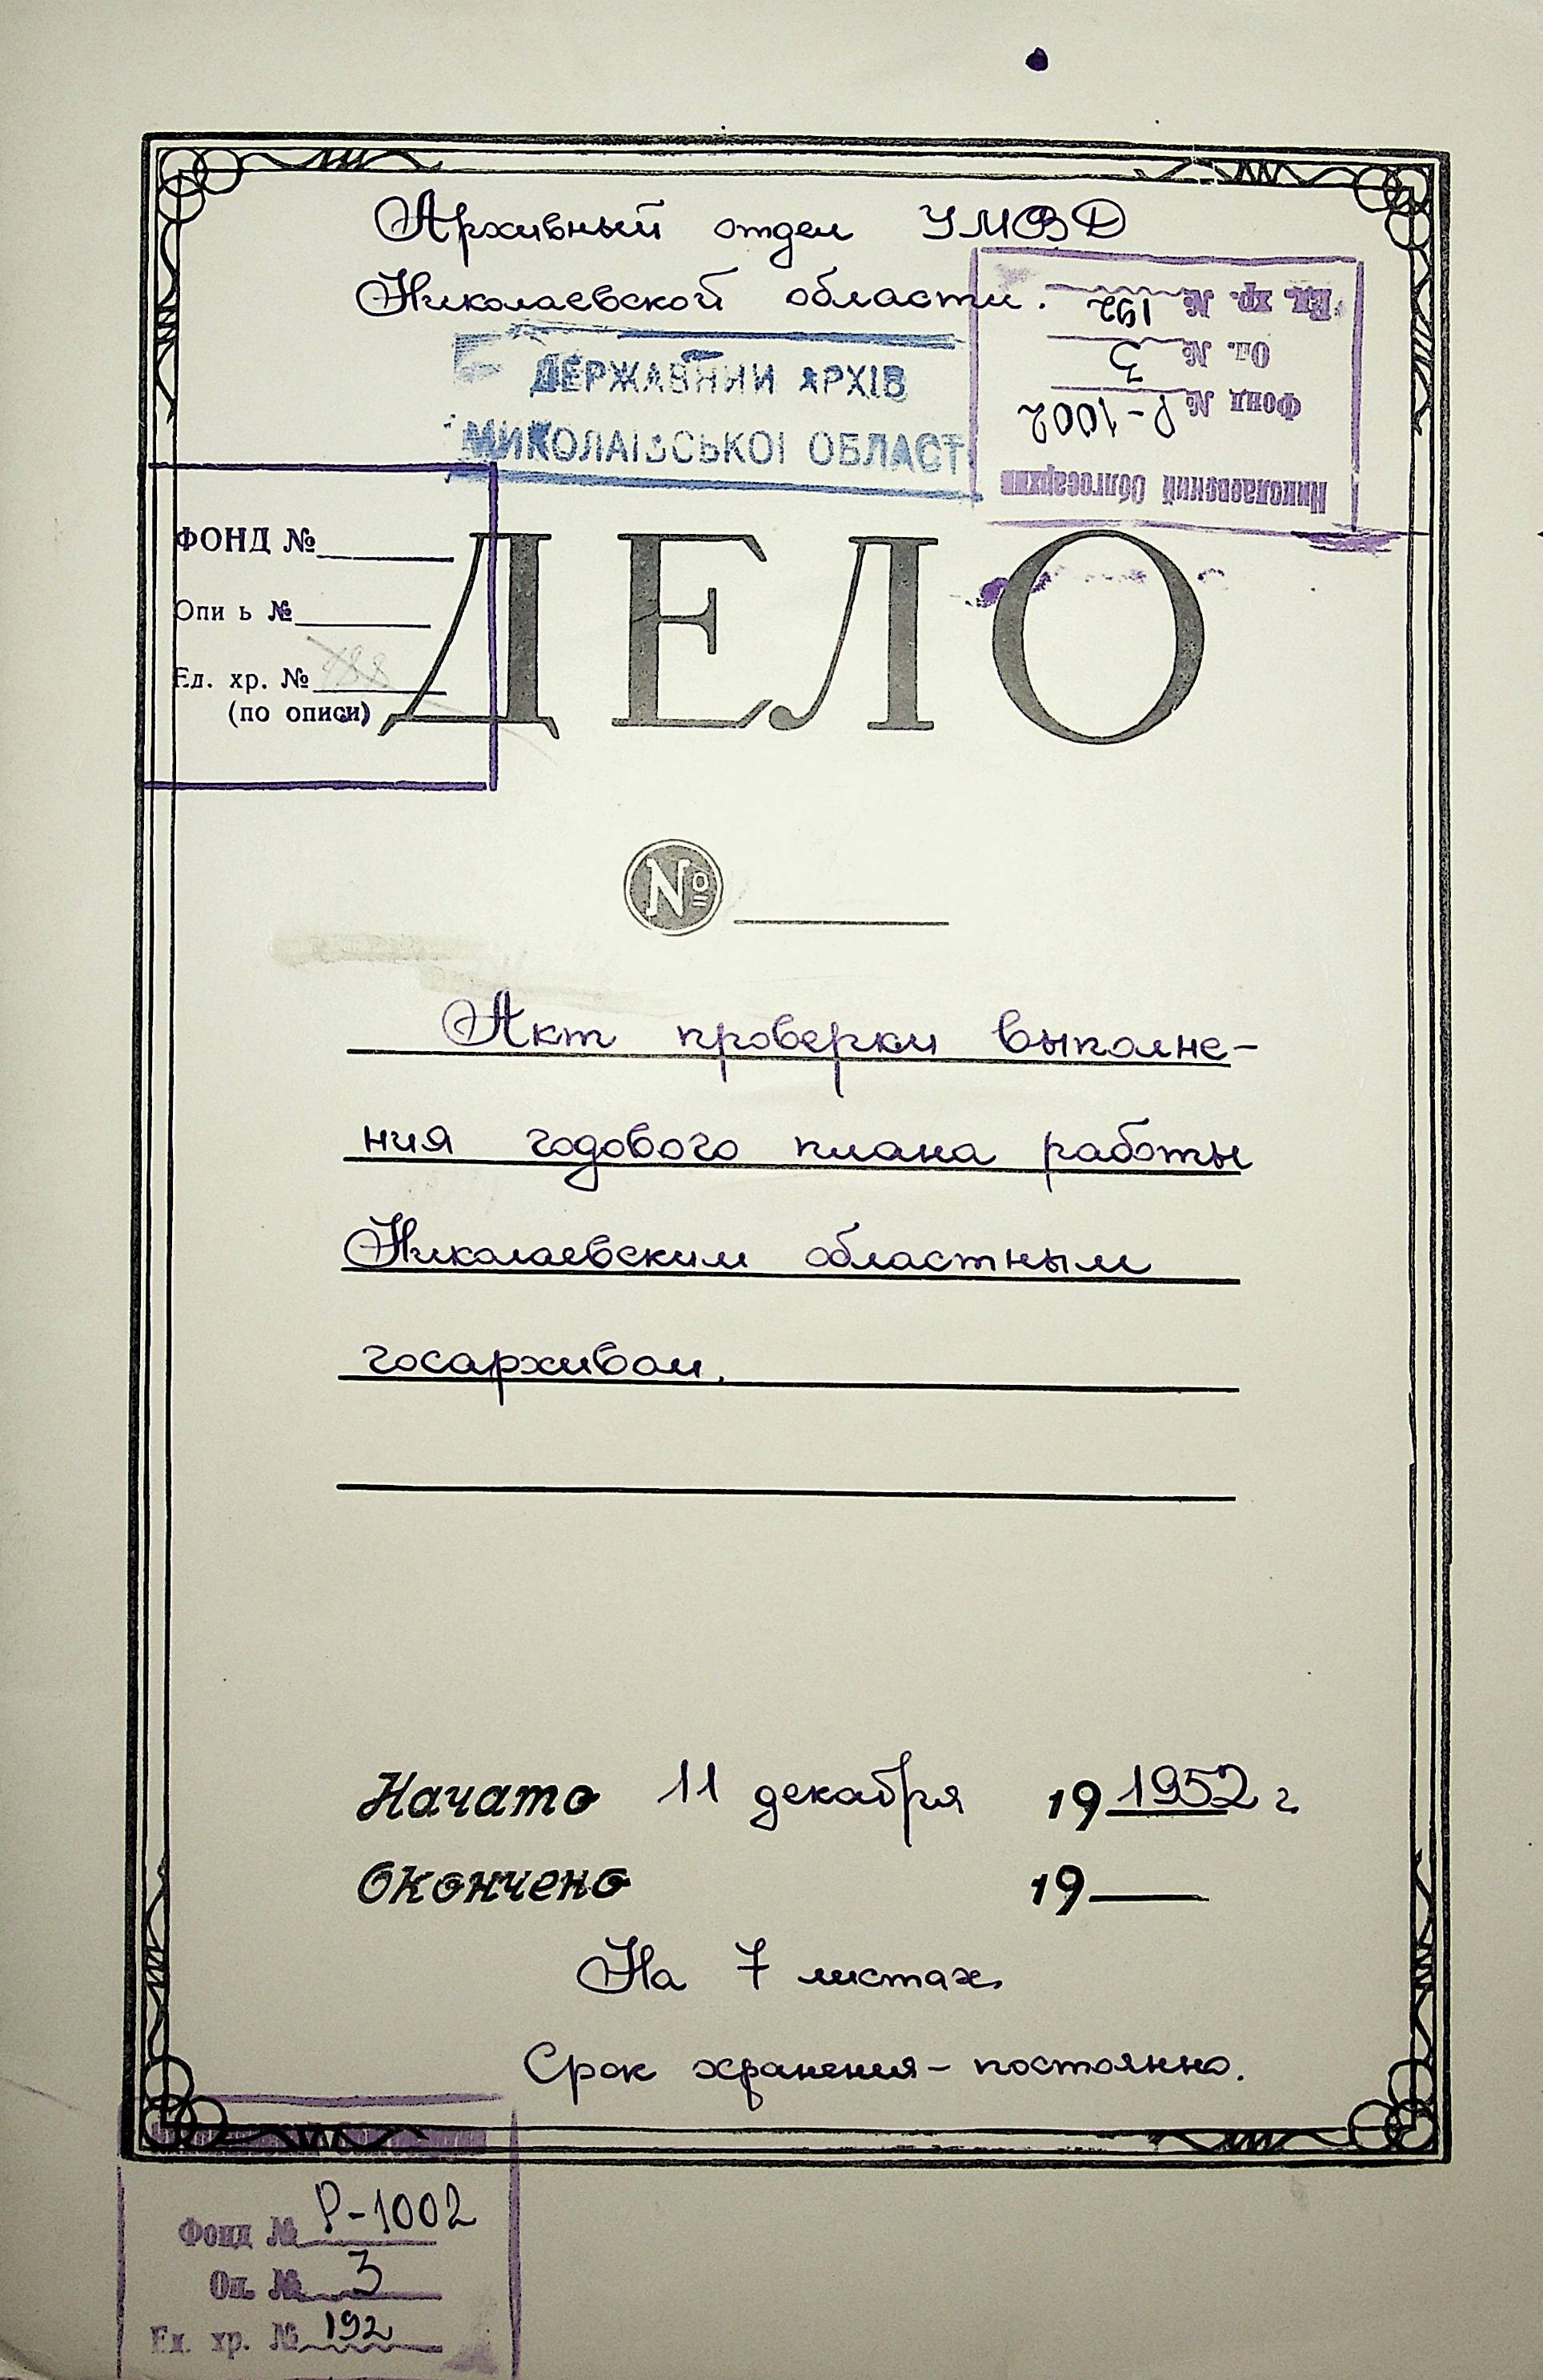 Архивный отдел УМВД
Николаевской области.
Ед. хр. № 192
Оп. № 3
Фонд № Р-1002
Николаевский Облгосархив
ДЕРЖАВНИЙ АРХІВ
МИКОЛАЇВСЬКОЇ ОБЛАСТ
ФОНД №
Опи ь №
Ед. хр. № 188
(по описи)
ДЕЛО
№
Акт проверки выполне-
ния годового плана работы
Николаевским областным
госархивом.
Начато 11 декабря 19 1952 г
Окончено 19
На 7 листах
Срок хранения - постоянно.
Фонд № Р-1002
Оп. № 3
Ед. хр. № 192